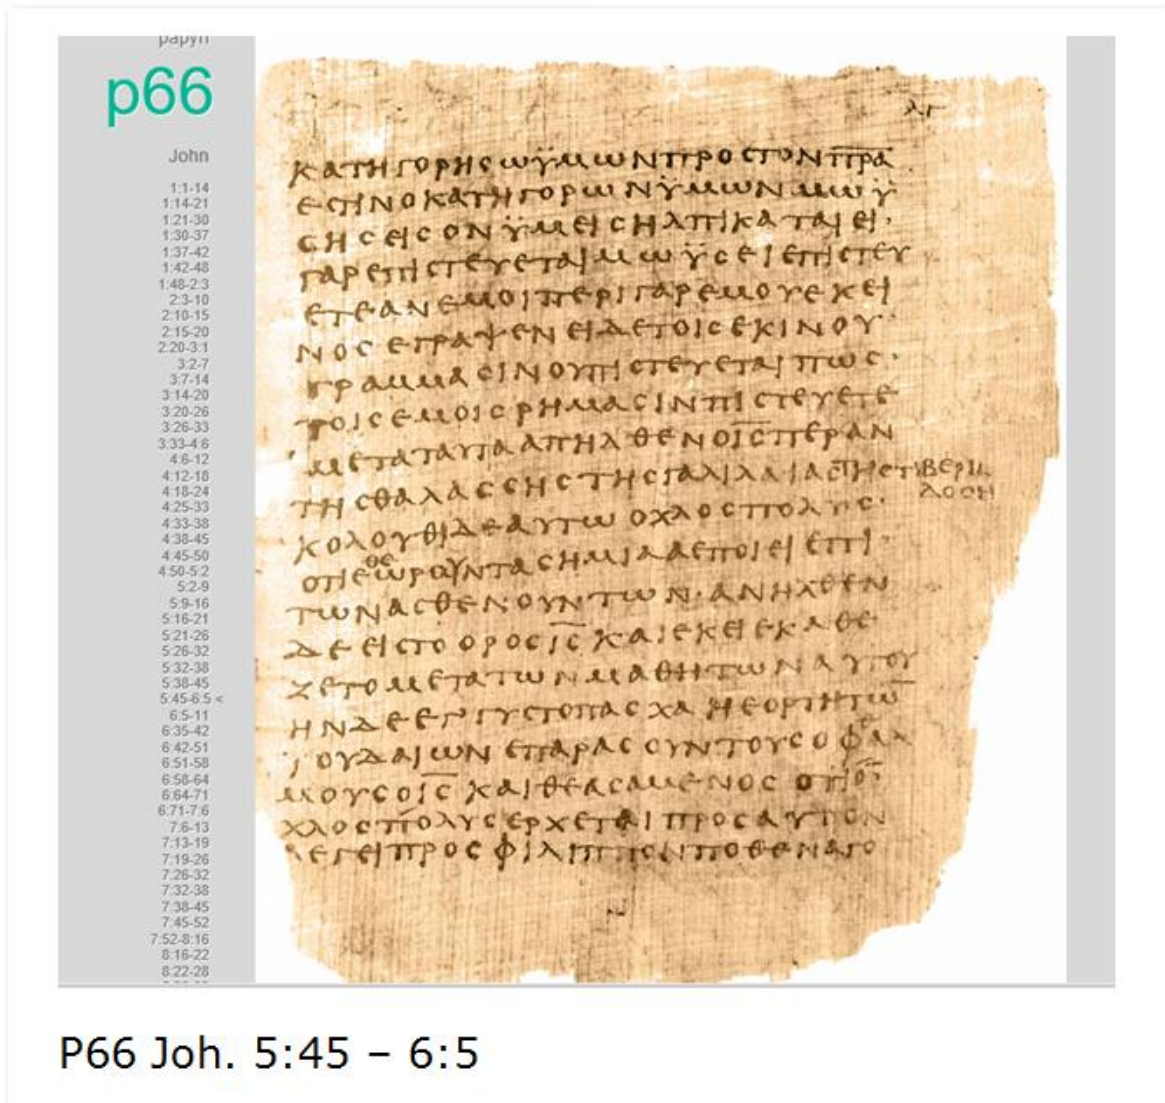 p66
John
1:1-14
1:14-21
1:21-30
1:30-37
1:37-42
1:42-48
1:48-2:3
2:3-10
2:10-15
2:15-20
2:20-3:1
3:2-7
3:7-14
3:14-20
3:20-26
3:26-33
3:33-4:6
4:6-12
4:12-18
4:18-24
4:25-33
4:33-38
4:38-45
4:45-50
4:50-5:2
5:2-9
5:9-16
5:16-21
5:21-26
5:26-32
5:32-38
5:38-45
5:45-6:5 <
6:5-11
6:35-42
6:42-51
6:51-58
6:58-64
6:64-71
6:71-7:6
7:6-13
7:13-19
7:19-26
7:26-32
7:32-38
7:38-45
7:45-52
7:52-8:16
8:16-22
8:22-28
ΛΓ
ΚΑΤΗΓΟΡΗϹΩΫΜΩΝΠΡΟϹΤΟΝΠ̅Ρ̅Α̅
ΕϹΤΙΝΟΚΑΤΗΓΟΡΩΝΫΜΩΝΜΩΫ
ϹΗϹΕΙϹΟΝΫΜΕΙϹΗΛΠΙΚΑΤΑΙΕΙ·
ΓΑΡΕΠΙϹΤΕΥΕΤΑΙΜΩΫϹΕΙΕΠΙϹΤΕΥ
ΕΤΕΑΝΕΜΟΙΠΕΡΙΓΑΡΕΜΟΥΕΚΕΙ
ΝΟϹΕΓΡΑΨΕΝΕΙΔΕΤΟΙϹΕΚΙΝΟΥ·
ΓΡΑΜΜΑϹΙΝΟΥΠΙϹΤΕΥΕΤΑΙΠΩϹ·
ΤΟΙϹΕΜΟΙϹΡΗΜΑϹΙΝΠΙϹΤΕΥΕΤΕ
ΜΕΤΑΤΑΥΤΑΑΠΗΛΘΕΝΟΙ̅Ϲ̅ΠΕΡΑΝ
ΤΗϹΘΑΛΑϹϹΗϹΤΗϹΓΑΛΙΛΑΙΑϹΤΗϹΤΙΒΕΡΙΑ
ΔΟϹΗ
ΚΟΛΟΥΘΙΔΕΑΥΤΩΟΧΛΟϹΠΟΛΥϹ·
ΟΤΙΕΘΕΩΡΟΥΝΤΑϹΗΜΙΑΑΕΠΟΙΕΙΕΠΙ·
ΤΩΝΑϹΘΕΝΟΥΝΤΩΝ·ΑΝΗΛΘΕΝ
ΔΕΕΙϹΤΟΟΡΟϹΙ̅Ϲ̅ΚΑΙΕΚΕΙΕΚΑΘΕ
ΖΕΤΟΜΕΤΑΤΩΝΜΑΘΗΤΩΝΑΥΤΟΥ
ΗΝΔΕΕΓΓΥϹΤΟΠΑϹΧΑΗΕΟΡΤΗΤΩ̅
ΪΟΥΔΑΙΩΝΕΠΑΡΑϹΟΥΝΤΟΥϹΟΦΘΑΛ
ΜΟΥϹΟΙ̅Ϲ̅ΚΑΙΘΕΑϹΑΜΕΝΟϹΟΤΙΟ
ΧΛΟϹΠΟΛΥϹΕΡΧΕΤΑΙΠΡΟϹΑΥΤΟΝ
ΛΕΓΕΙΠΡΟϹΦΙΛΙΠΠΟΝΠΟΘΕΝΑΓΟ
P66 Joh. 5:45 – 6:5